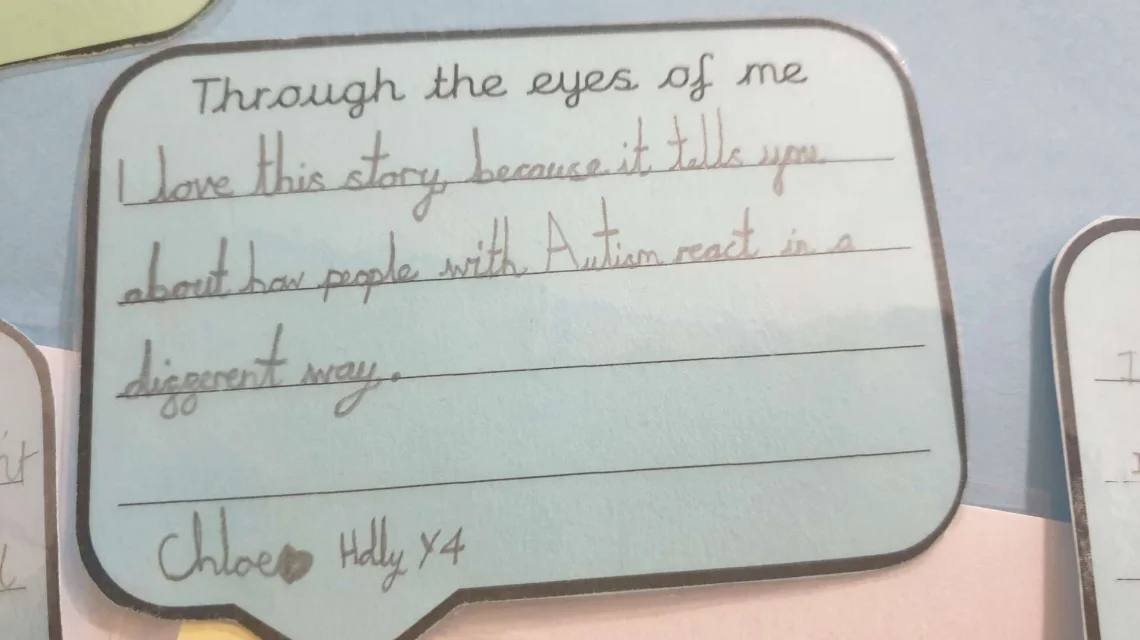 Through the eyes of me
I love this story, because it tells you
about how people with Autism react in a
different way.
Chloe Holly Y4